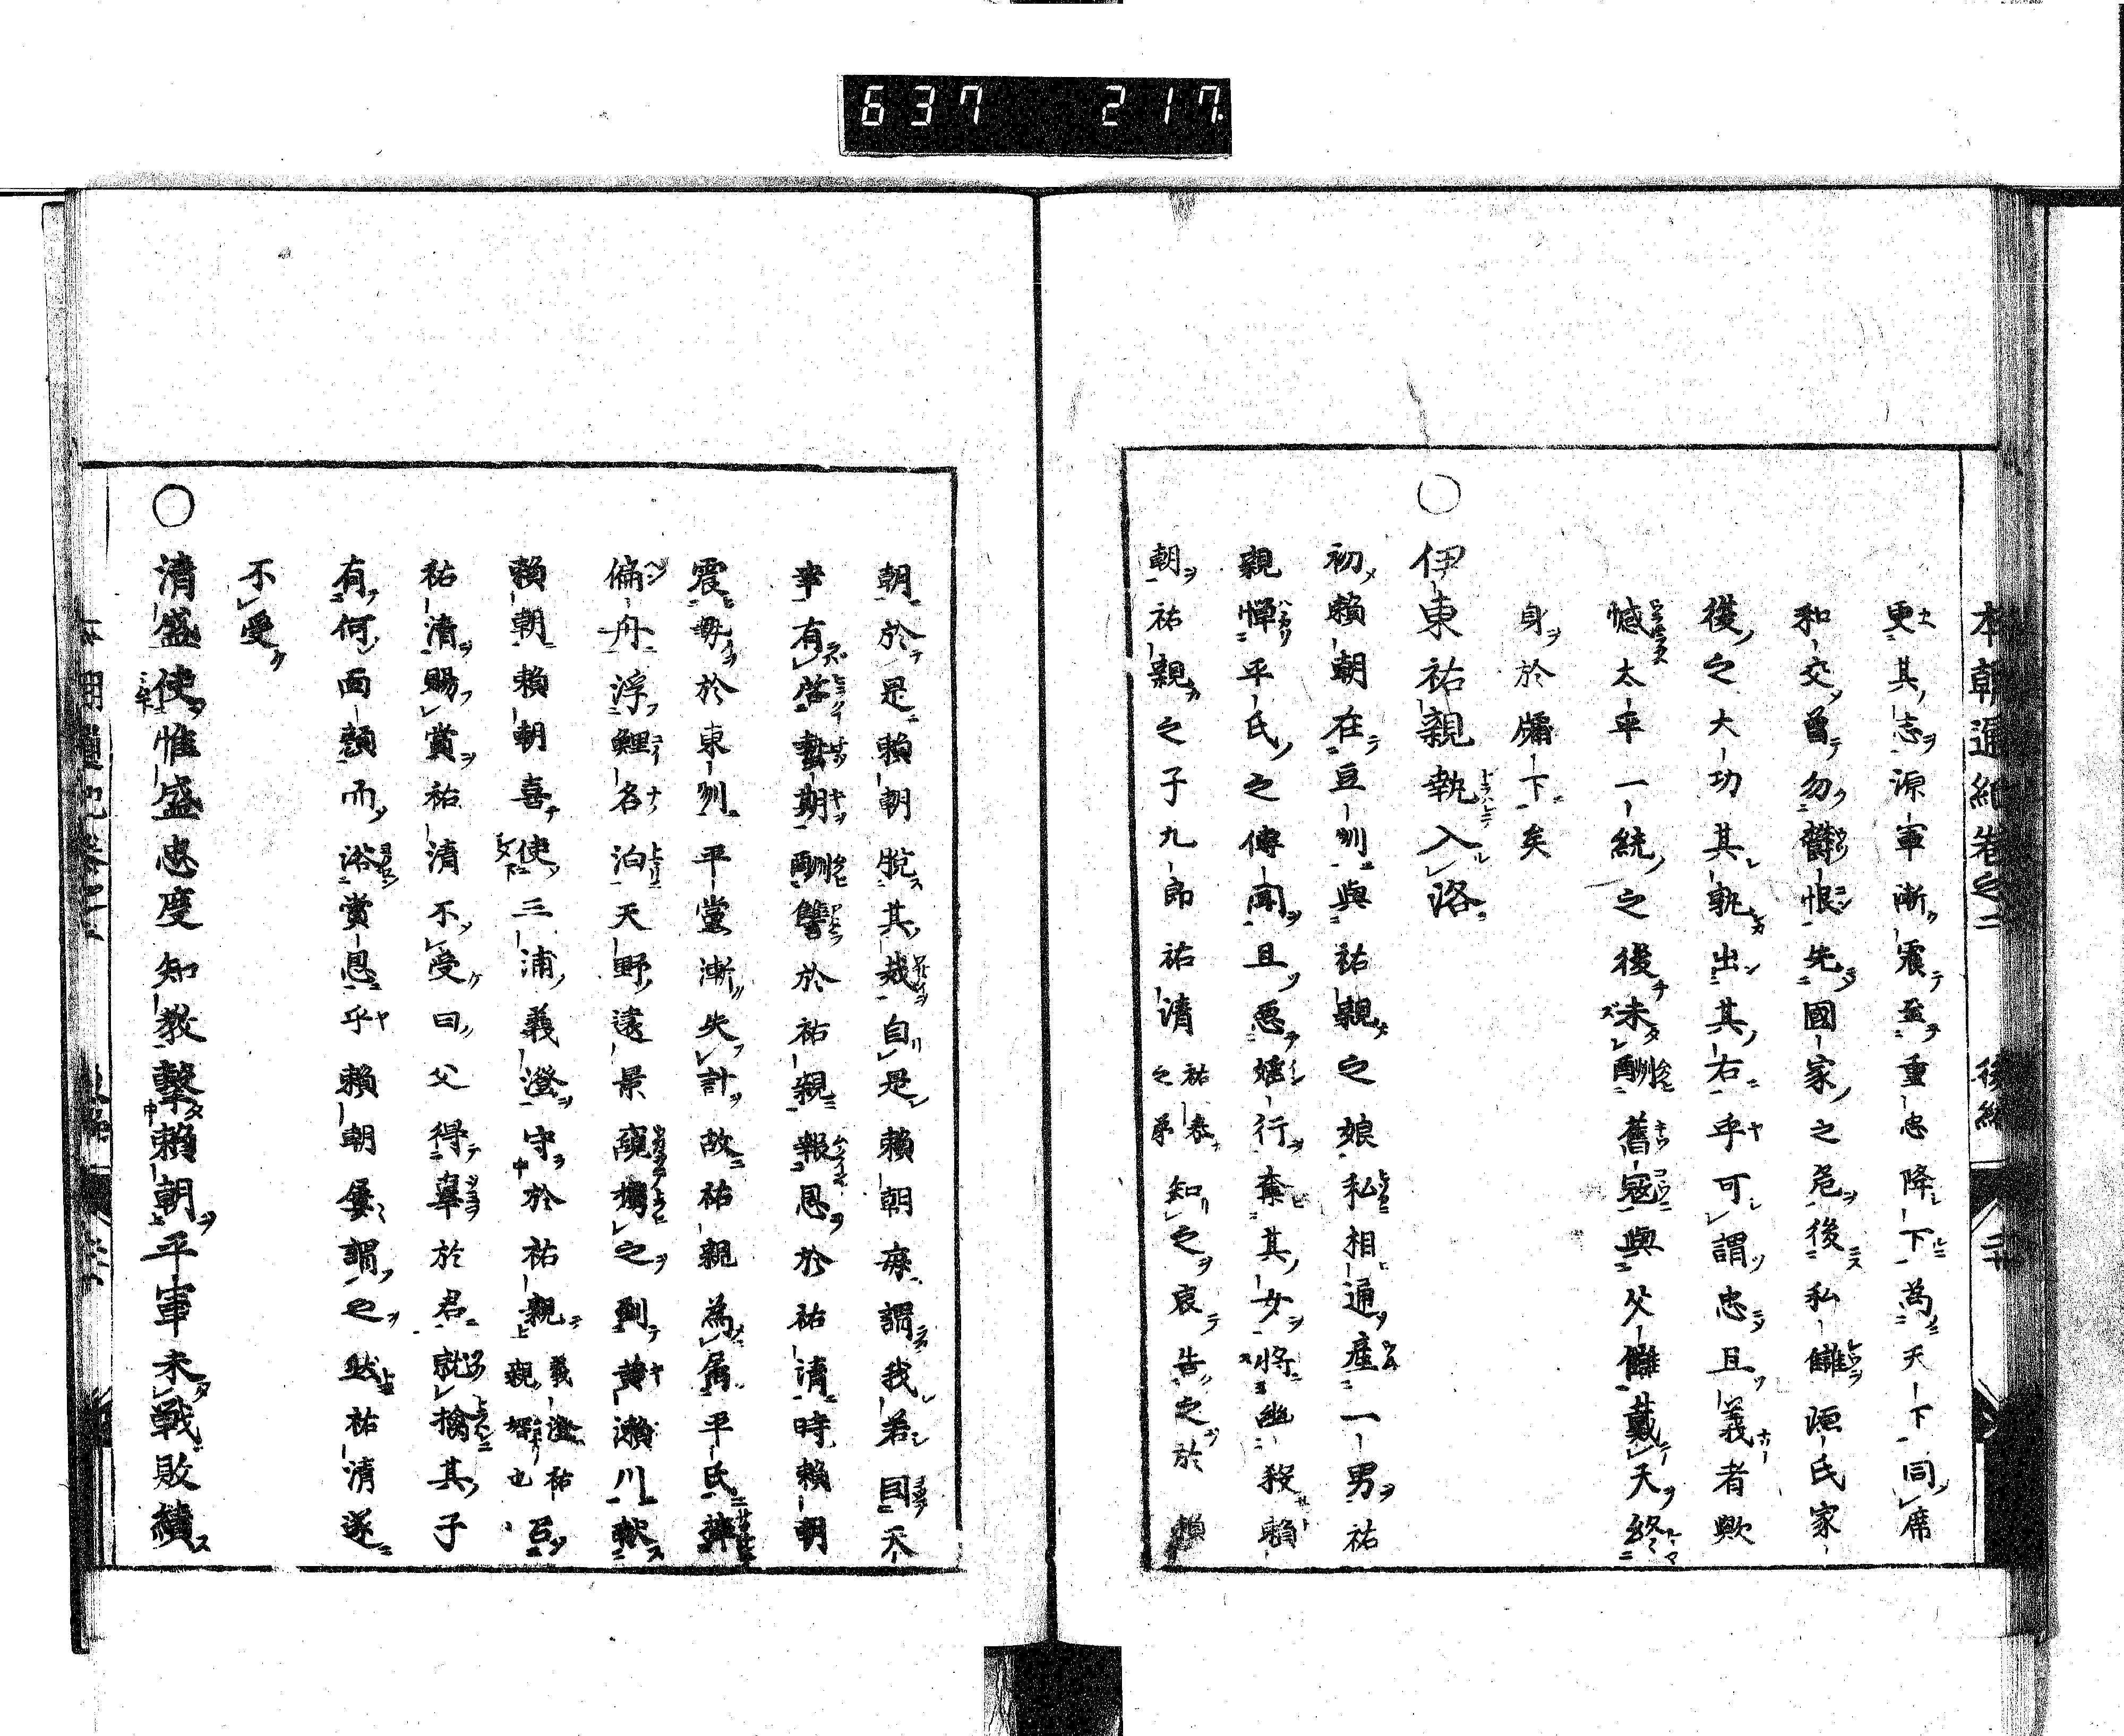 637 217
本朝通紀卷之二 後編
更其志源軍漸震並重忠降下為天下同席
和交曽勿欝恨先國家之危後私讎源氏家
僕之大功其孰出其右乎可謂忠且義者歟
憾太平一統之後未酬舊寇與父讎戴天終
身於牖下矣
○伊東祐親執入洛
初賴朝在豆州與祐親之娘私相通產一男祐
親憚平氏之傳聞且惡婬行奪其女將幽殺賴
朝祐親之子九郎祐清祐泰之弟知之哀告之於賴
朝於是賴朝脫其烖自是賴朝每謂我若因天
幸有啓蟄期酬讐於祐親報恩於祐清時賴朝
震毒於東州平黨漸失計故祐親為屬平氏艤
偏舟浮鯉名泊天野遠景窺擒之到黄瀬川獻
賴朝賴朝喜使三浦義澄守於祐親義澄祐親婿也召
祐清賜賞祐清不受曰父得辜於君就擒其子
有何面顏而浴賞恩乎賴朝屢謂之然祐清遂
不受
○清盛使惟盛忠度知教擊賴朝平軍未戰敗績